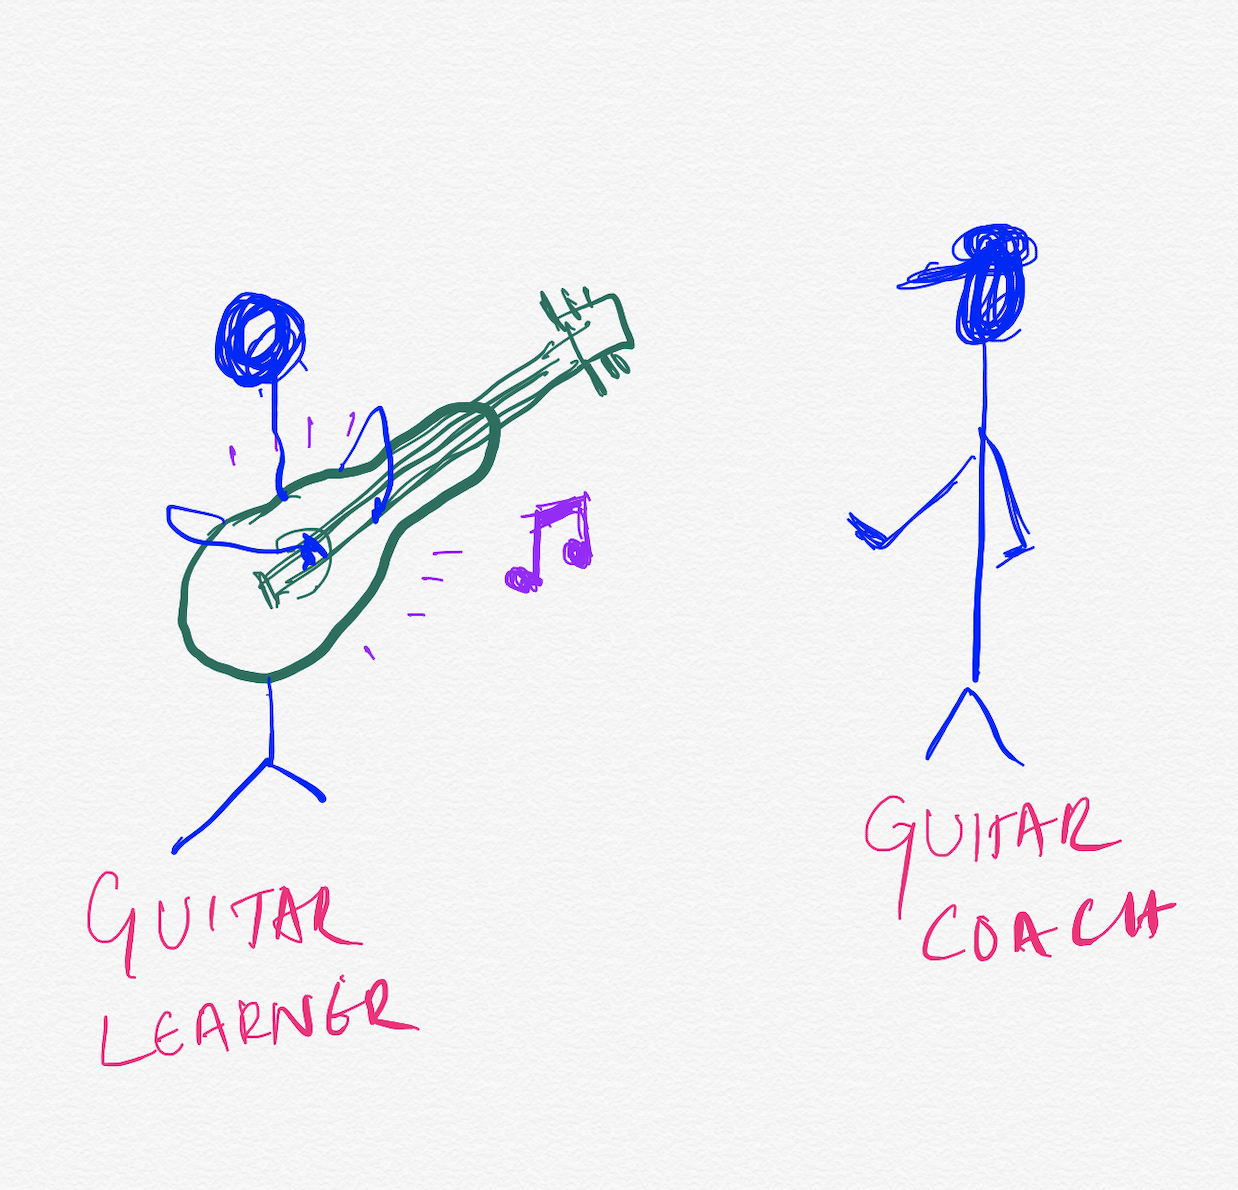 GUITAR
LEARNER
GUITAR
COACH